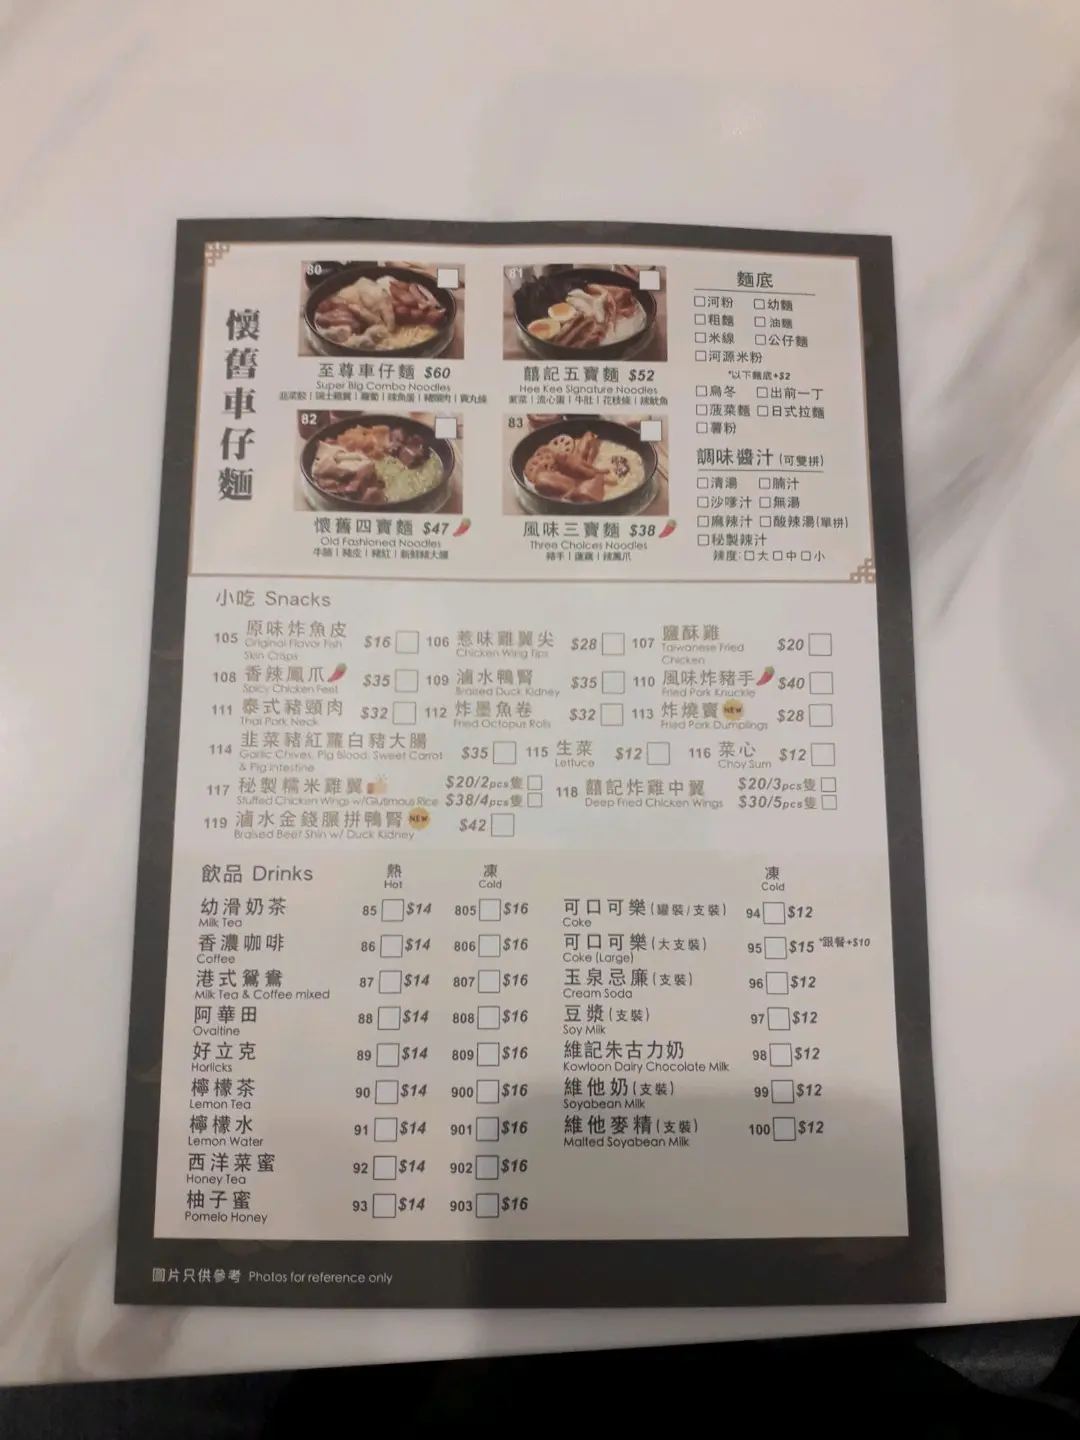 懷舊車仔麵
80
至尊車仔麵 $60
Super Big Combo Noodles
韭菜餃 | 瑞士雞翼 | 蘿蔔 | 辣魚蛋 | 豬頸肉 | 貢丸條
81
囍記五寶麵 $52
Hee Kee Signature Noodles
紫菜 | 流心蛋 | 牛肚 | 花枝條 | 辣魷魚
82
懷舊四寶麵 $47
Old Fashioned Noodles
牛腩 | 豬皮 | 豬紅 | 新鮮豬大腸
83
風味三寶麵 $38
Three Choices Noodles
豬手 | 蓮藕 | 辣鳳爪
麵底
□河粉 □幼麵
□粗麵 □油麵
□米線 □公仔麵
□河源米粉
*以下麵底+$2
□烏冬 □出前一丁
□菠菜麵 □日式拉麵
□薯粉
調味醬汁(可雙拼)
□清湯 □腩汁
□沙嗲汁 □無湯
□麻辣汁 □酸辣湯(單拼)
□秘製辣汁
辣度:□大□中□小
小吃 Snacks
105 原味炸魚皮 $16
Original Flavor Fish
Skin Crisps
106 惹味雞翼尖 $28
Chicken Wing Tips
107 鹽酥雞 $20
Taiwanese Fried
Chicken
108 香辣鳳爪 $35
Spicy Chicken Feet
109 滷水鴨腎 $35
Braised Duck Kidney
110 風味炸豬手 $40
Fried Pork Knuckle
111 泰式豬頸肉 $32
Thai Pork Neck
112 炸墨魚卷 $32
Fried Octopus Rolls
113 炸燒賣 NEW $28
Fried Pork Dumplings
114 韭菜豬紅蘿白豬大腸 $35
Garlic Chives, Pig Blood, Sweet Carrot
& Pig Intestine
115 生菜 $12
Lettuce
116 菜心 $12
Choy Sum
117 秘製糯米雞翼 $20/2pcs隻
Stuffed Chicken Wings w/Glutinous Rice $38/4pcs隻
118 囍記炸雞中翼 $20/3pcs隻
Deep Fried Chicken Wings $30/5pcs隻
119 滷水金錢𦟌拼鴨腎 NEW $42
Braised Beef Shin w/ Duck Kidney
飲品 Drinks
熱 凍
Hot Cold
幼滑奶茶 85 $14 805 $16
Milk Tea
香濃咖啡 86 $14 806 $16
Coffee
港式鴛鴦 87 $14 807 $16
Milk Tea & Coffee mixed
阿華田 88 $14 808 $16
Ovaltine
好立克 89 $14 809 $16
Horlicks
檸檬茶 90 $14 900 $16
Lemon Tea
檸檬水 91 $14 901 $16
Lemon Water
西洋菜蜜 92 $14 902 $16
Honey Tea
柚子蜜 93 $14 903 $16
Pomelo Honey
凍
Cold
可口可樂(罐裝/支裝) 94 $12
Coke
可口可樂(大支裝) 95 $15 *跟餐+$10
Coke (Large)
玉泉忌廉(支裝) 96 $12
Cream Soda
豆漿(支裝) 97 $12
Soy Milk
維記朱古力奶 98 $12
Kowloon Dairy Chocolate Milk
維他奶(支裝) 99 $12
Soyabean Milk
維他麥精(支裝) 100 $12
Malted Soyabean Milk
圖片只供參考 Photos for reference only